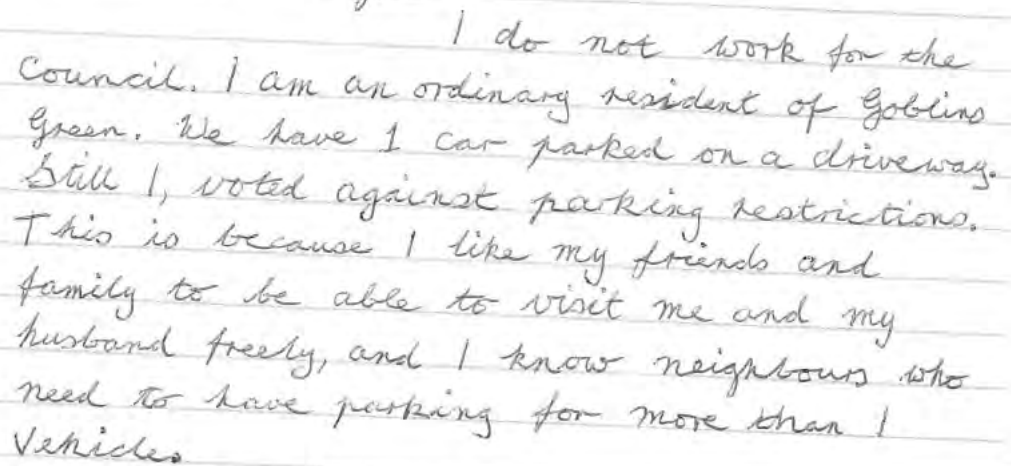 I do not work for the
Council. I am an ordinary resident of Goblins
Green. We have 1 car parked on a driveway.
Still I, voted against parking restrictions.
This is because I like my friends and
family to be able to visit me and my
husband freely, and I know neighbours who
need to have parking for more than 1
Vehicle.